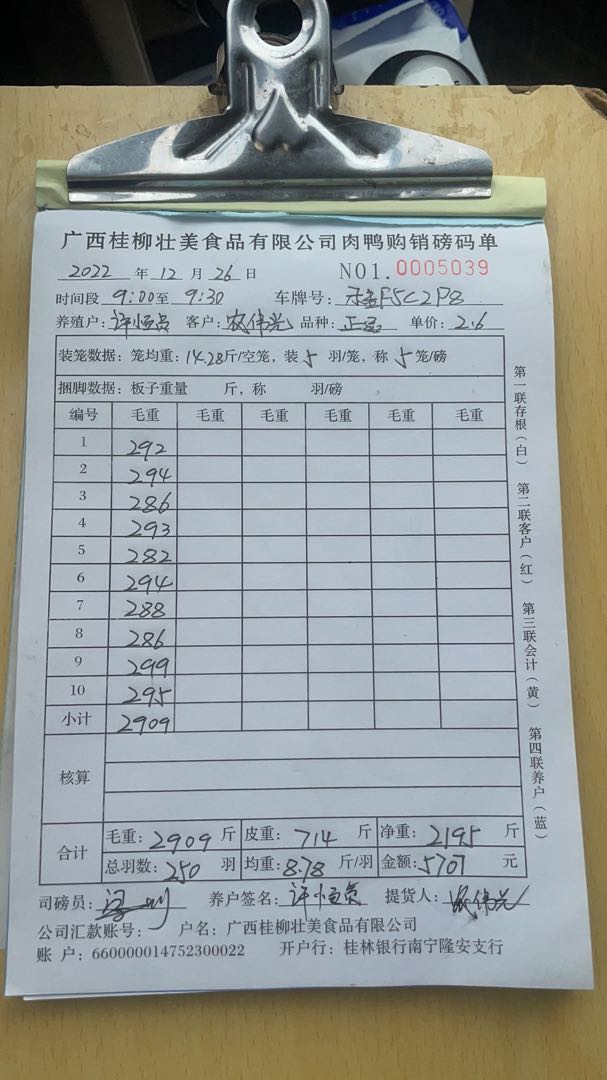 广西桂柳壮美食品有限公司肉鸭购销磅码单
2022 年 12 月 26 日 NO1. 0005039
时间段 9:00至 9:30 车牌号: F5C2P8
养殖户: 许恒员 客户: 农伟光 品种: 正品 单价: 2.6
装笼数据: 笼均重: 14.28斤/空笼, 装 5 羽/笼, 称 5 笼/磅
捆脚数据: 板子重量 斤, 称 羽/磅
编号 毛重 毛重 毛重 毛重 毛重 毛重
1 292
2 294
3 286
4 293
5 282
6 294
7 288
8 286
9 299
10 295
小计 2909
核算
合计 毛重: 2909 斤 皮重: 714 斤 净重: 2195 斤
总羽数: 250 羽 均重: 8.78 斤/羽 金额: 5707 元
司磅员: 养户签名: 许恒员 提货人: 农伟光
公司汇款账号: 户名: 广西桂柳壮美食品有限公司
账 户: 660000014752300022 开户行: 桂林银行南宁隆安支行
第一联存根(白) 第二联客户(红) 第三联会计(黄) 第四联养户(蓝)